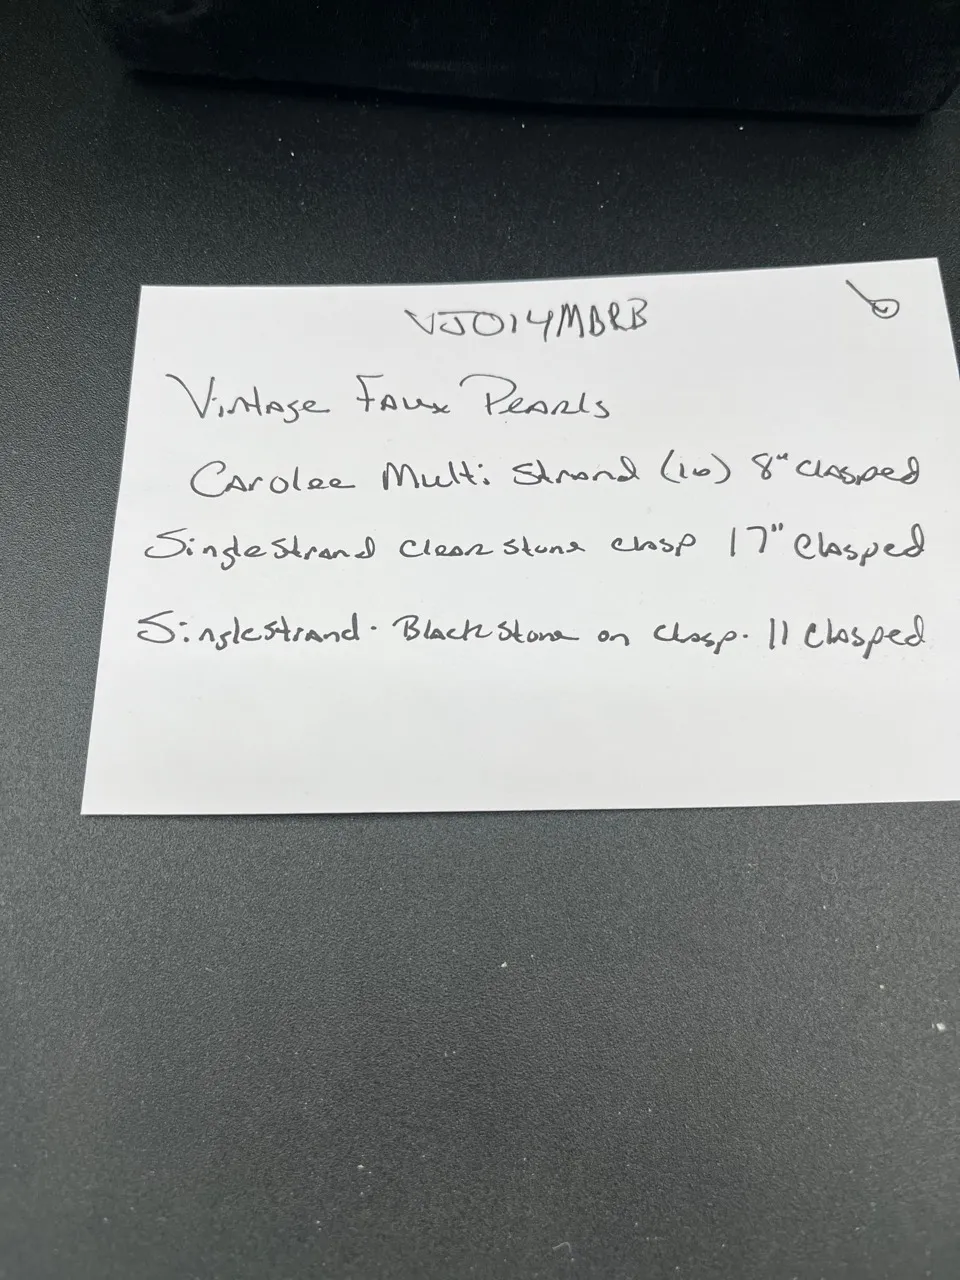 VJ014MBRB
Vintage Faux Pearls
Carolee Multi Strand (16) 8" Clasped
Single Strand Clear stone clasp 17" Clasped
Single strand. Black stone on clasp. 11 Clasped